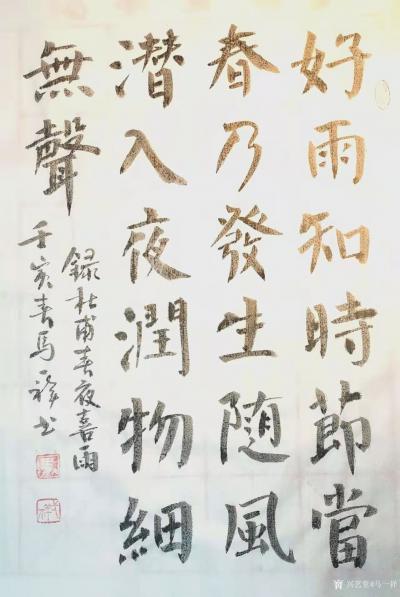 好雨知時節當
春乃發生随風
潛入夜潤物細
無聲
録杜甫春夜喜雨
壬寅春馬一祥书
兴艺堂@马一祥